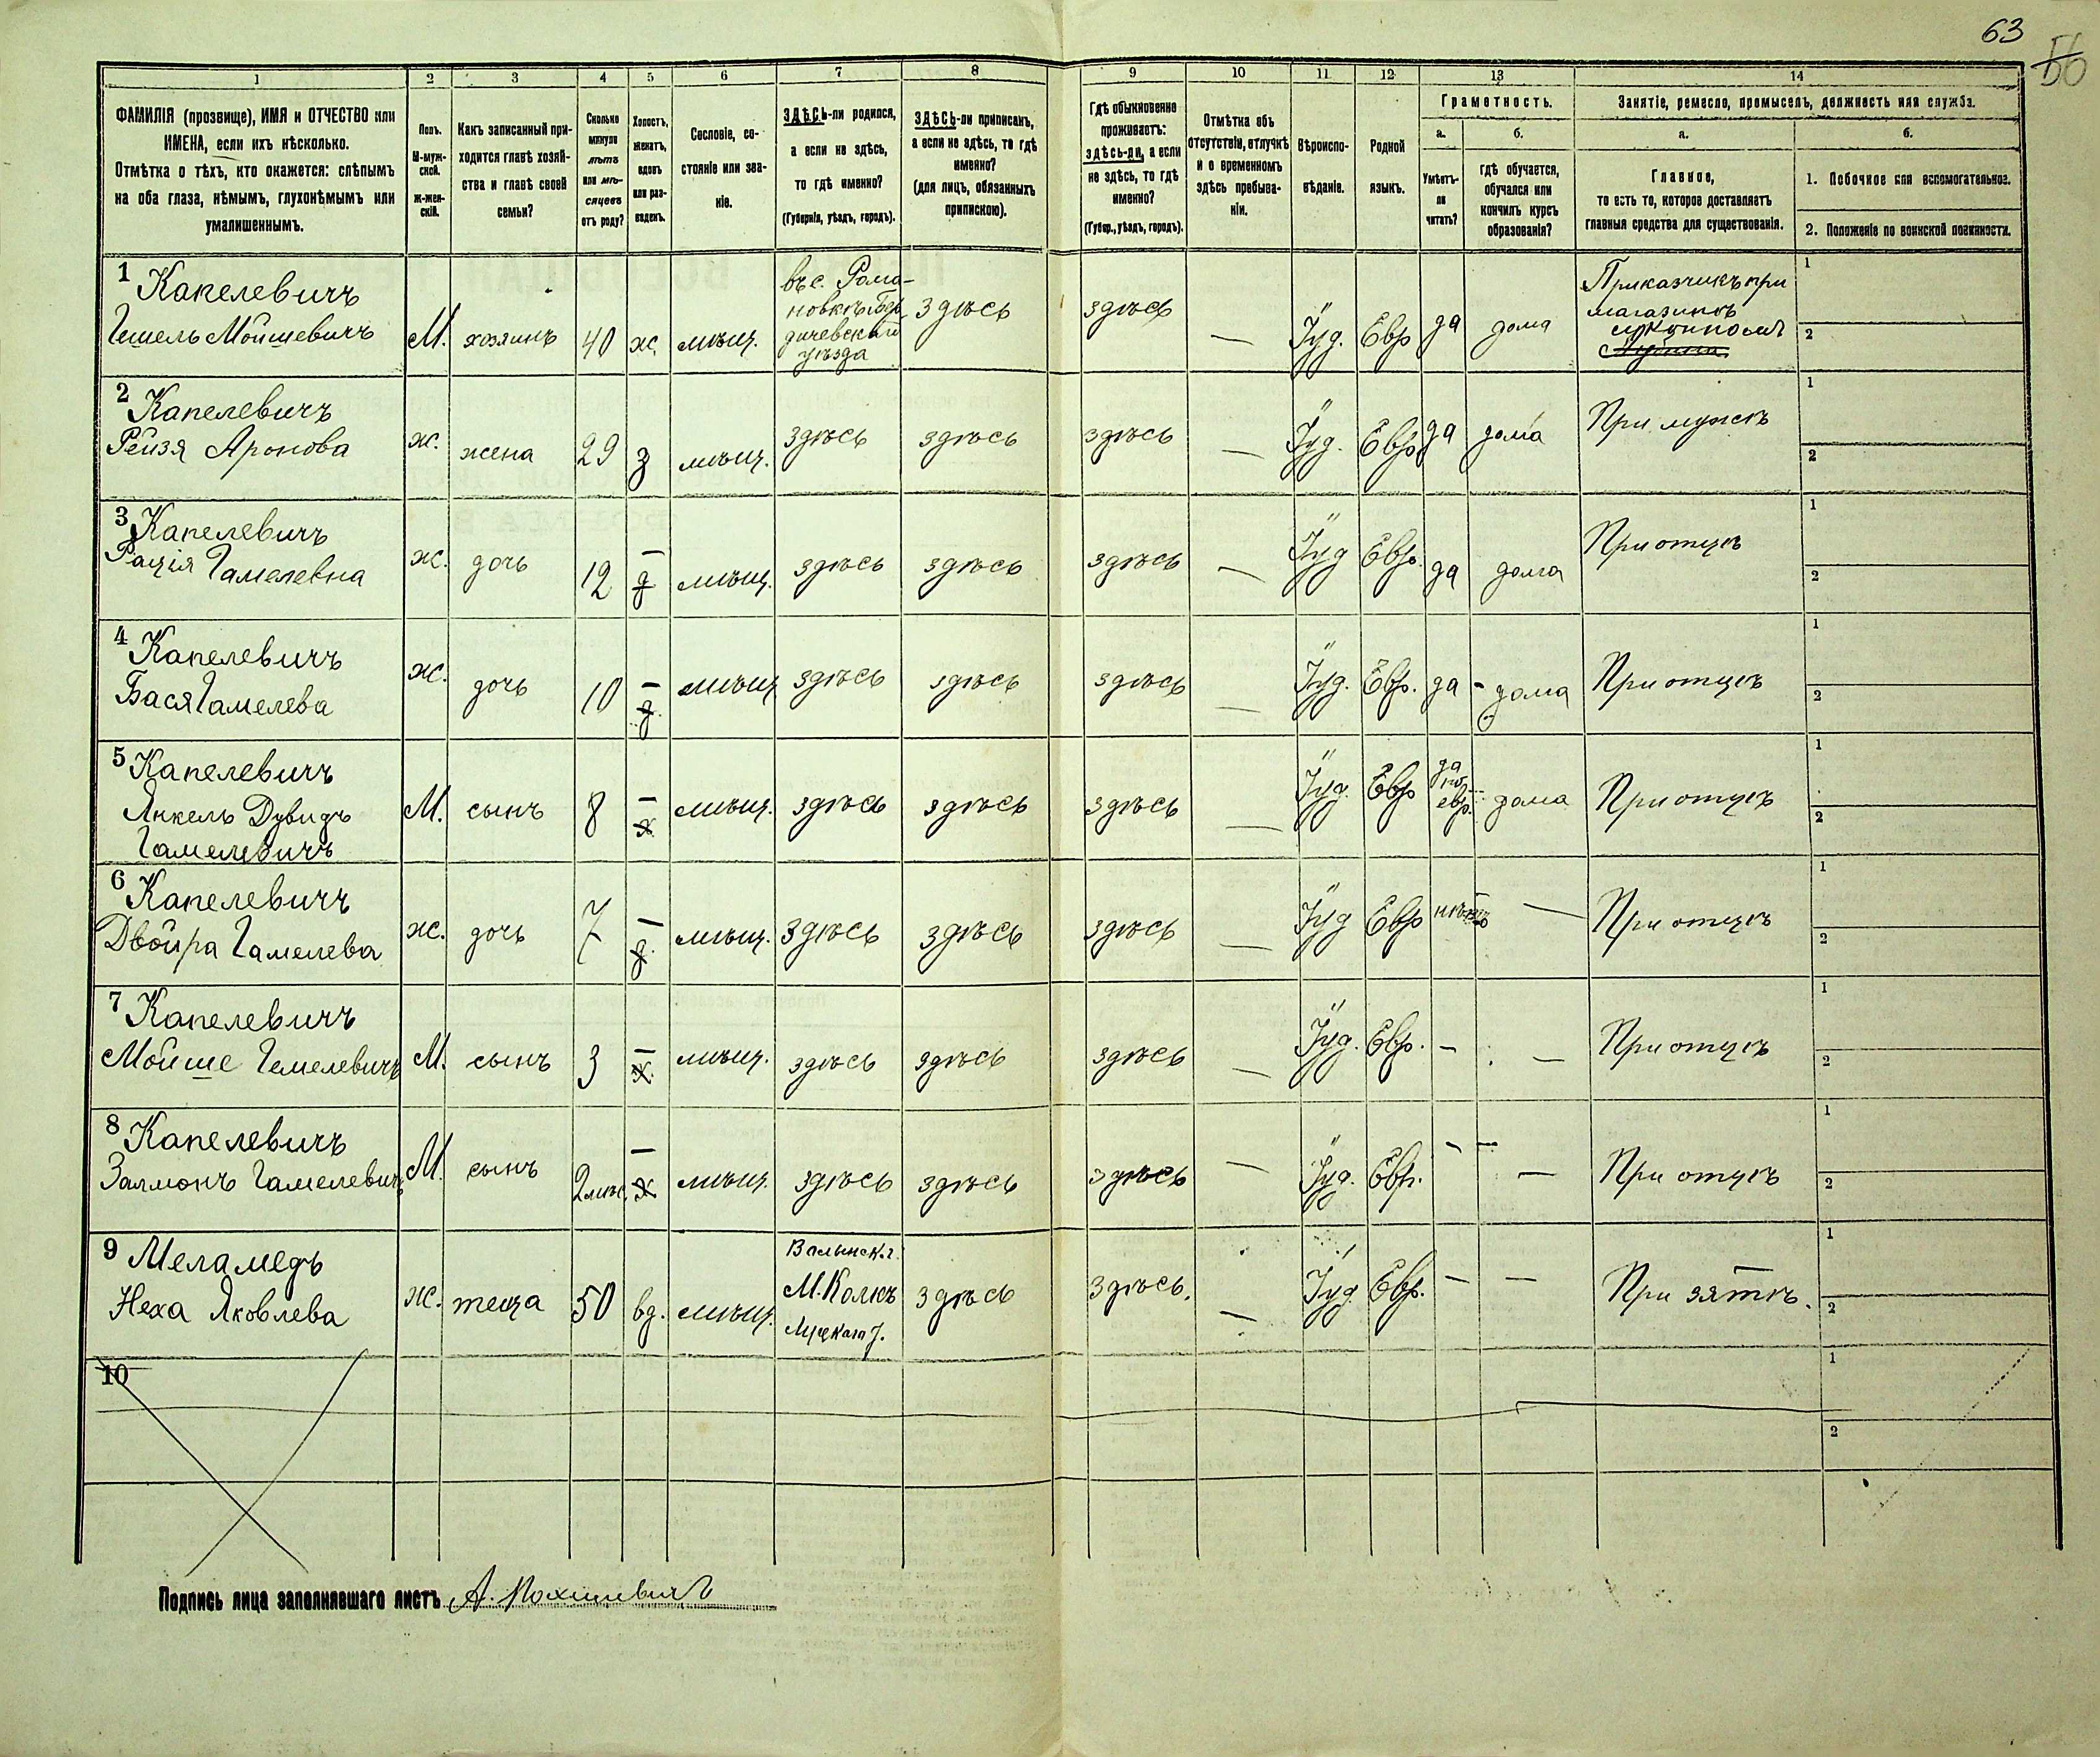 63
56
1 2 3 4 5 6 7 8 9 10 11 12 13 14
ФАМИЛІЯ (прозвище), ИМЯ и ОТЧЕСТВО или
ИМЕНА, если ихъ нѣсколько.
Отмѣтка о тѣхъ, кто окажется: слѣпымъ
на оба глаза, нѣмымъ, глухонѣмымъ или
умалишеннымъ.
Полъ.
М-муж-
ской.
Ж-жен-
скій.
Какъ записанный при-
ходится главѣ хозяй-
ства и главѣ своей
семьи?
Сколько
минуло
лѣтъ
или мѣ-
сяцевъ
отъ роду?
Холостъ,
женатъ,
вдовъ
или раз-
веденъ.
Сословіе, со-
стояніе или зва-
ніе.
ЗДѢСЬ-ли родился,
а если не здѣсь,
то гдѣ именно?
(Губернія, уѣздъ, городъ).
ЗДѢСЬ-ли приписанъ,
а если не здѣсь, то гдѣ
именно?
(для лицъ, обязанныхъ
припискою).
Гдѣ обыкновенно
проживаетъ:
здѣсь-ли, а если
не здѣсь, то гдѣ
именно?
(Губер., уѣздъ, городъ).
Отмѣтка объ
отсутствіи, отлучкѣ
и о временномъ
здѣсь пребыва-
ніи.
Вѣроиспо-
вѣданіе.
Родной
языкъ.
Грамотность.
а.
Умѣетъ-
ли
читать?
б.
гдѣ обучается,
обучался или
кончилъ курсъ
образованія?
Занятіе, ремесло, промыселъ, должность или служба.
а.
Главное,
то есть то, которое доставляетъ
главныя средства для существованія.
б.
1. Побочное или вспомогательное.
2. Положеніе по воинской повинности.
1 Капелевичъ
Гешель Мойшевичъ
М. хозяинъ 40 ж. мѣщ.
въ с. Рома-
новкѣ Бер
дичевскаго
уѣзда
здѣсь здѣсь — Іуд. Евр да дома
Приказчикъ при
магазинѣ
1
2
2 Капелевичъ
Рейзя Аронова
ж. жена 29 з мѣщ. здѣсь здѣсь здѣсь — Іуд. Евр. да дома При мужѣ
1
2
3 Капелевичъ
Рация Гамелевна
ж. дочь 12 — д мѣщ. здѣсь здѣсь здѣсь — Іуд Евр. да дома При отцѣ
1
2
4 Капелевичъ
Бася Гамелева
ж. дочь 10 — д. мѣщ здѣсь здѣсь здѣсь — Іуд. Евр. да - дома При отцѣ
1
2
5 Капелевичъ
Янкель Дувидъ
Гамелевичъ
М. сынъ 8 — х мѣщ. здѣсь здѣсь здѣсь — Іуд. Евр
да
по
евр.
дома При отцѣ
1
2
6 Капелевичъ
Двойра Гамелева
ж. дочь 7 — д. мѣщ. здѣсь здѣсь здѣсь — Іуд Евр нѣтъ — При отцѣ
1
2
7 Капелевичъ
Мойше Гемелевичъ
М. сынъ 3 — х. мѣщ. здѣсь здѣсь здѣсь — Іуд. Евр. — — При отцѣ
1
2
8 Капелевичъ
Залмонъ Гамелевичъ
М. сынъ 2 мѣс. — х мѣщ. здѣсь здѣсь здѣсь — Іуд. Евр. — — При отцѣ
1
2
9 Меламедъ
Неха Яковлева
ж. теща 50 вд. мѣщ.
Валынск. г.
М. Колкъ
Луцкаго у.
здѣсь здѣсь. — Іуд. Евр. — — При зятѣ.
1
2
10
1
2
Подпись лица заполнявшаго листъ